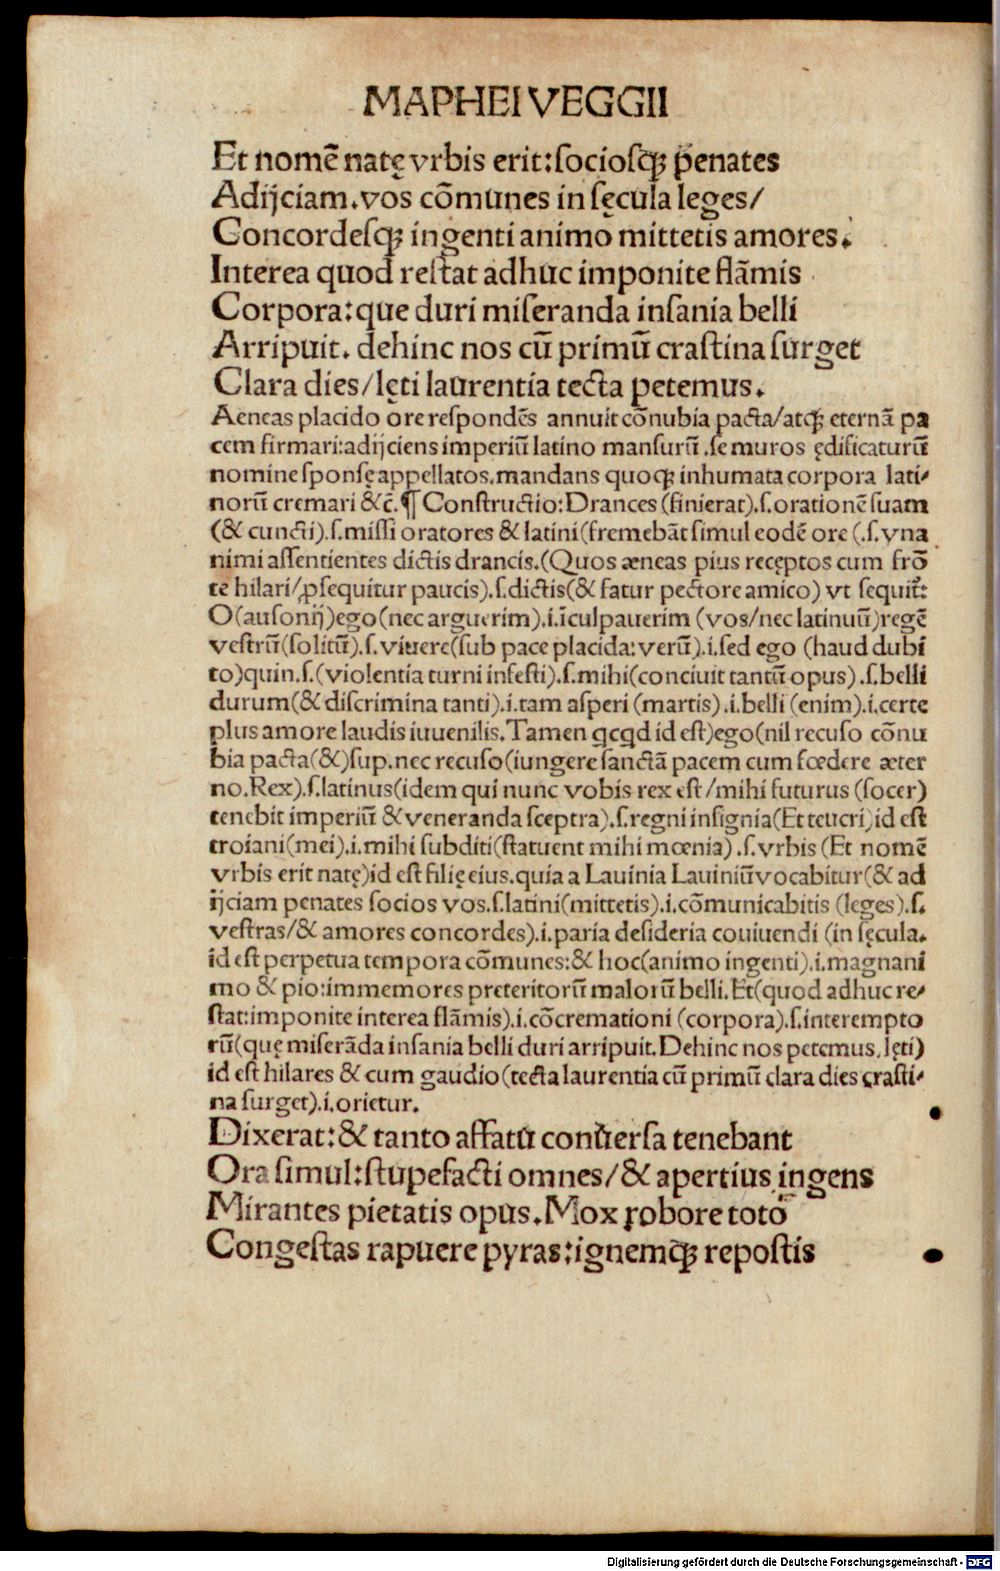 MAPHEI VEGGII
Et nomē natę vrbis erit: sociosq; penates
Adijciam. vos cōmunes in sęcula leges/
Concordesq; ingenti animo mittetis amores.
Interea quod restat adhuc imponite flāmis
Corpora: que duri miseranda insania belli
Arripuit. dehinc nos cū primū crastina surget
Clara dies/ lęti laurentia tecta petemus.
Aeneas placido ore respondēs annuit cōnubia pacta/ atq; eternā pa
cem firmari: adijciens imperiū latino mansurū. se muros ędificaturū
nomine sponsę appellatos. mandans quoq; inhumata corpora lati-
norū cremari &c̄. ¶ Constructio: Drances (finierat). s. orationē suam
(& cuncti). s. missi oratores & latini (fremebāt simul eodē ore (. s. vna
nimi assentientes dictis drancis. (Quos æneas pius receptos cum frō
te hilari/ ꝓsequitur paucis). s. dictis (& fatur pectore amico) vt sequit̄:
O (ausonij) ego (nec arguerim). i. īculpauerim (vos/ nec latinuū) regē
vestrū (solitū). s. viuere (sub pace placida: verū). i. sed ego (haud dubi
to) quin. s. (violentia turni infesti). s. mihi (conciuit tantū opus). s. belli
durum (& discrimina tanti). i. tam asperi (martis). i. belli (enim). i. certe
plus amore laudis iuuenilis. Tamen qcqd id est) ego (nil recuso cōnu
bia pacta (&) sup. nec recuso (iungere sanctā pacem cum fœdere æter
no. Rex). s. latinus (idem qui nunc vobis rex est/ mihi futurus (socer)
tenebit imperiū & veneranda sceptra). s. regni insignia (Et teucri) id est
troiani (mei). i. mihi subditi (statuent mihi mœnia). s. vrbis (Et nomē
vrbis erit natę) id est filię eius. quia a Lauinia Lauiniū vocabitur (& ad
ijciam penates socios vos. s. latini (mittetis). i. cōmunicabitis (leges). s.
vestras/ & amores concordes). i. paria desideria couiuendi (in sęcula.
id est perpetua tempora cōmunes: & hoc (animo ingenti). i. magnani
mo & pio: immemores preteritorū malorū belli. Et (quod adhuc re-
stat: imponite interea flāmis). i. cōcremationi (corpora). s. interempto
rū (quę miserāda insania belli duri arripuit. Dehinc nos petemus, lęti)
id est hilares & cum gaudio (tecta laurentia cū primū clara dies crasti-
na surget). i. orietur.
Dixerat: & tanto affatu conūersa tenebant
Ora simul: stupefacti omnes/ & apertius ingens
Mirantes pietatis opus. Mox robore toto
Congestas rapuere pyras: ignemq; repostis
Digitalisierung gefördert durch die Deutsche Forschungsgemeinschaft - DFG